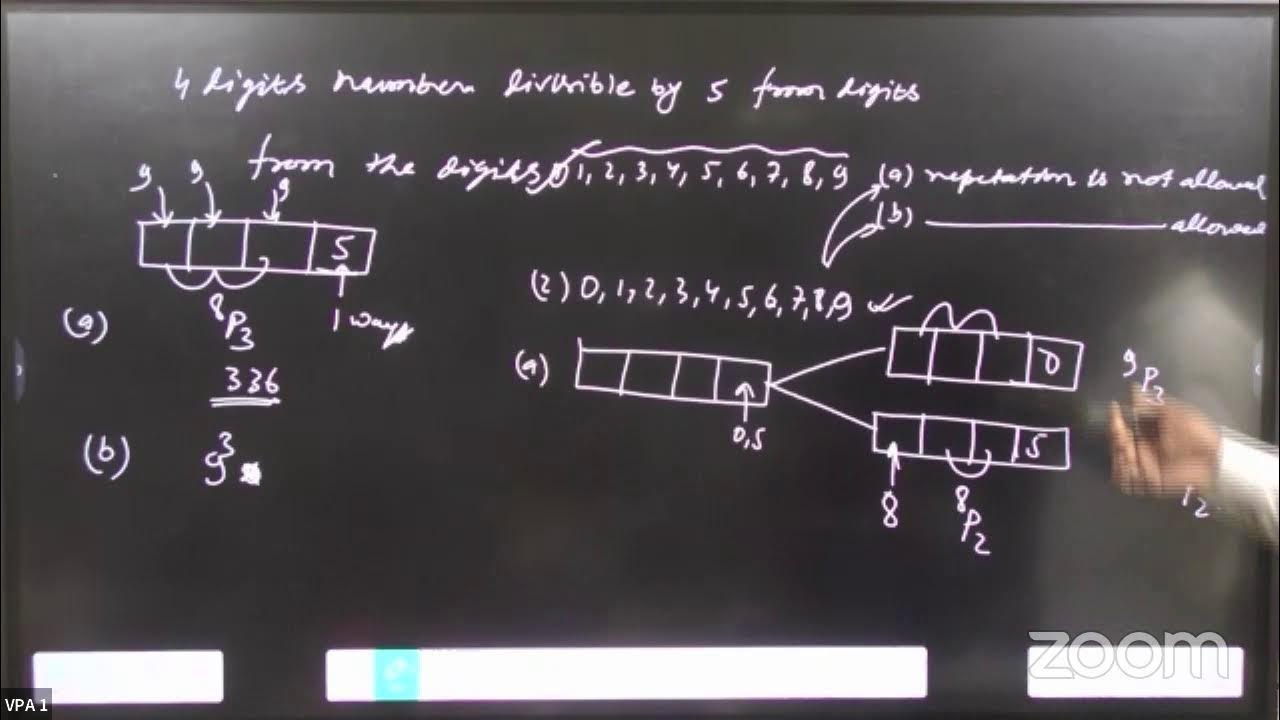 4 digits number divisible by 5 from digits
from the digits 0 1, 2, 3, 4, 5, 6, 7, 8, 9 (a) repetation is not allowed
(b) ———— allowed
9 9 9
5
8P3
1 ways
(a)
336
(b) 9^3
(2) 0, 1, 2, 3, 4, 5, 6, 7, 8, 9
(a)
0,5
0
9P3
5
8
8P2
zoom
VPA 1